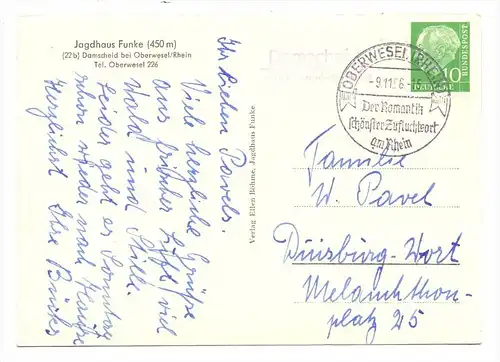 Jagdhaus Funke (450 m)
(22b) Damscheid bei Oberwesel/Rhein
Tel. Oberwesel 226
Ihr lieben Pavels.
Viele herzliche Grüße
aus frischer Luft, viel
Wald und Stille.
Leider geht es Sonntag
schon wieder nach Hause
Herzlichst Else Brücks
Verlag Ellen Böhme, Jagdhaus Funke
Damscheid
OBERWESEL (RHEIN)
-9.11.56.-15
Der Romantik
schönster Zufluchtsort
am Rhein
10
DEUTSCHE
BUNDESPOST
Familie
W. Pavel
Duisburg-Wort
Melanchthon-
platz 25